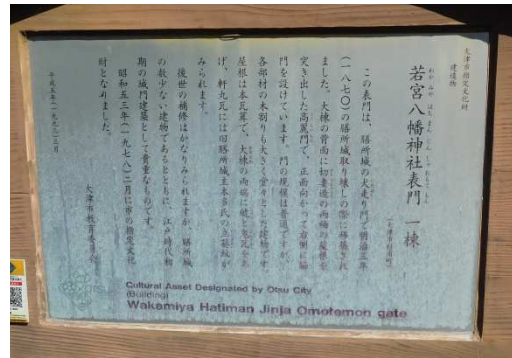 大津市指定文化財
建造物
わか みや はち まん じん じゃ おもて もん
若宮八幡神社表門 一棟
この表門は、膳所城の犬走り門で明治三年
(一八七〇)の膳所城取り壊しの際に移築され
ました。大棟の背面に切妻造の両袖の屋根を
突き出した高麗門で、正面向かって右側に脇
門を設けています。門の規模は普通ですが、
各部材の木割りも大きく堂々とした建物です。
屋根は本瓦葺で、大棟の両端に鯱と鬼瓦をあ
げ、軒丸瓦には旧膳所城主本多氏の立葵紋が
みられます。
後世の補修はかなりみられますが、膳所城
の数少ない建物であるとともに、江戸時代初
期の城門建築として貴重なものです。
昭和五三年(一九七八)二月に市の指定文化
財となりました。
大津市教育委員会
平成五年(一九九三)三月
Cultural Asset Designated by Otsu City
(Building)
Wakamiya Hatiman Jinja Omotemon gate